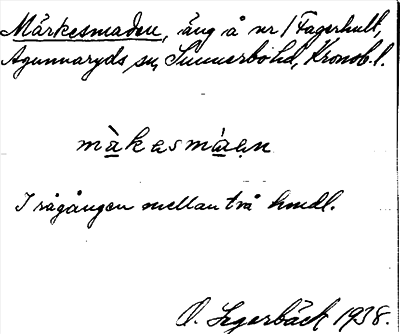 Märkesmaden, äng å nr 1 Fagerhult,
Agunnaryds sn, Sunnerbo hd, Kronob. l.
màkasmáαn
I rågången mellan två hmdl.
O. Segerbäck 1938.